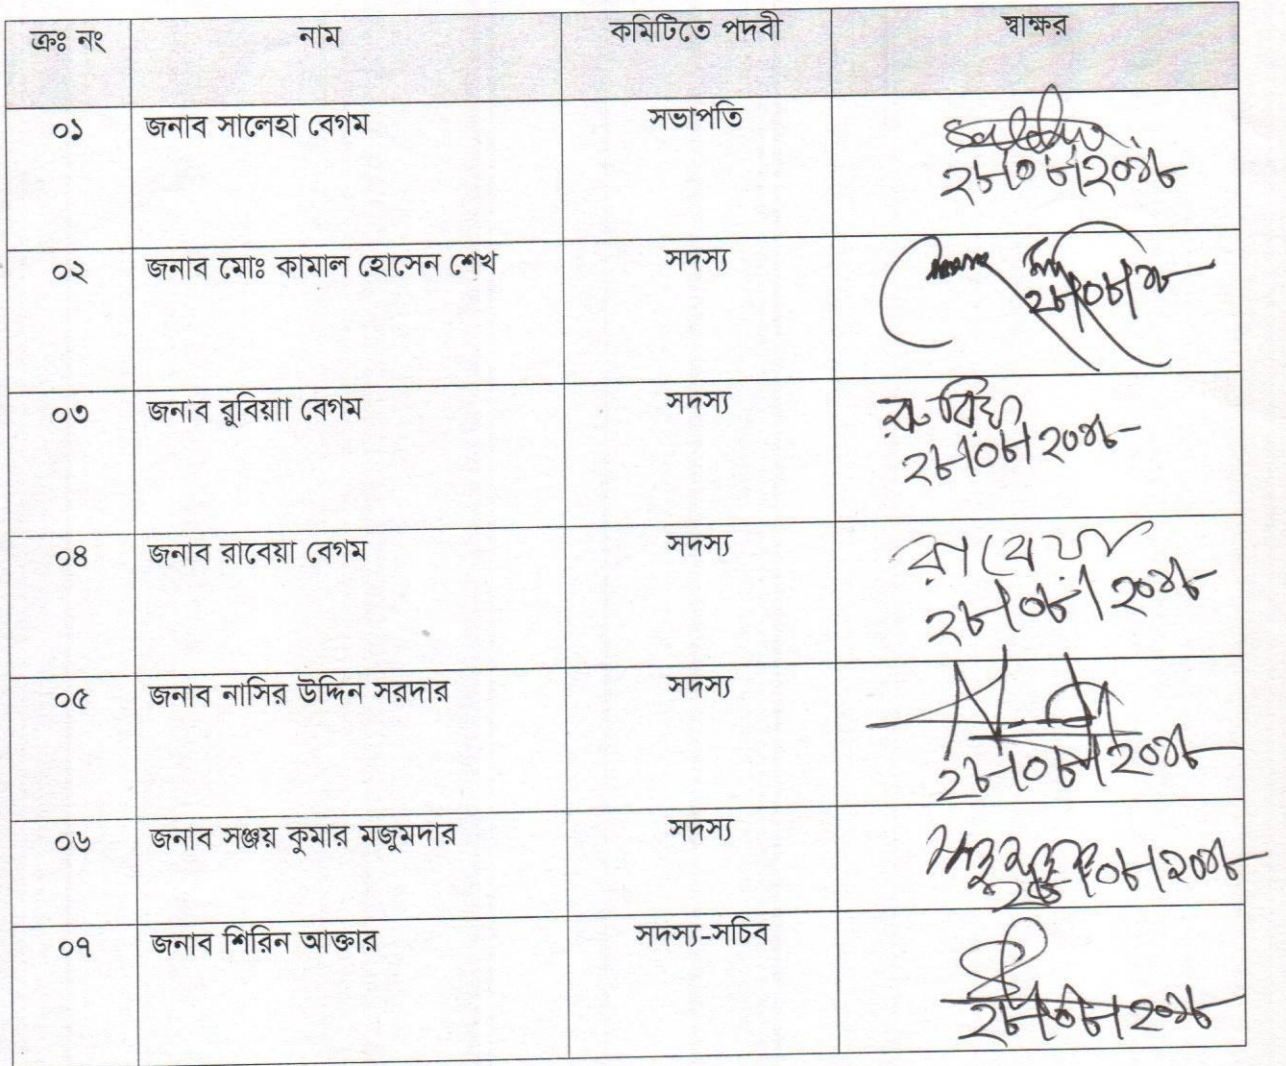 ক্রঃ নং নাম কমিটিতে পদবী স্বাক্ষর
০১ জনাব সালেহা বেগম সভাপতি
২৮/০৮/২০১৮
০২ জনাব মোঃ কামাল হোসেন শেখ সদস্য
২৮/০৮/১৮
০৩ জনাব রুবিয়াা বেগম সদস্য রুবিয়া
২৮/০৮/২০১৮
০৪ জনাব রাবেয়া বেগম সদস্য রাবেয়া
২৮/০৮/২০১৮
০৫ জনাব নাসির উদ্দিন সরদার সদস্য
২৮/০৮/২০১৮
০৬ জনাব সঞ্জয় কুমার মজুমদার সদস্য
২৮/০৮/২০১৮
০৭ জনাব শিরিন আক্তার সদস্য-সচিব
২৮/০৮/২০১৮